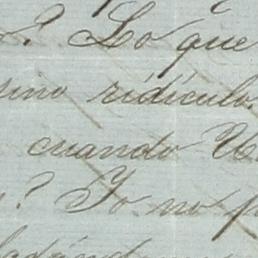 ? Lo que
sino ridículo.
cuando U
? Yo no p